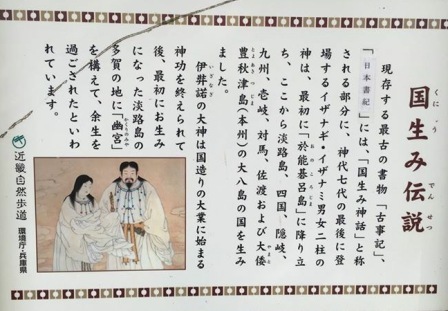 国生み伝説
くにう でんせつ
現存する最古の書物「古事記」、
「日本書紀」には、「国生み神話」と称
される部分に、神代七代の最後に登
場するイザナギ・イザナミ男女二柱の
神は、最初に「於能碁呂島」に降り立
おのころじま
ち、ここから淡路島、四国、隠岐、
九州、壱岐、対馬、佐渡および大倭
やまと
豊秋津島(本州)の大八島の国を生み
とよあきつしま
ました。
伊弉諾の大神は国造りの大業に始まる
いざなぎ
神功を終えられて
後、最初にお生み
になった淡路島の
多賀の地に「幽宮」
かくりのみや
を構えて、余生を
過ごされたといわ
れています。
近畿自然歩道
環境庁・兵庫県